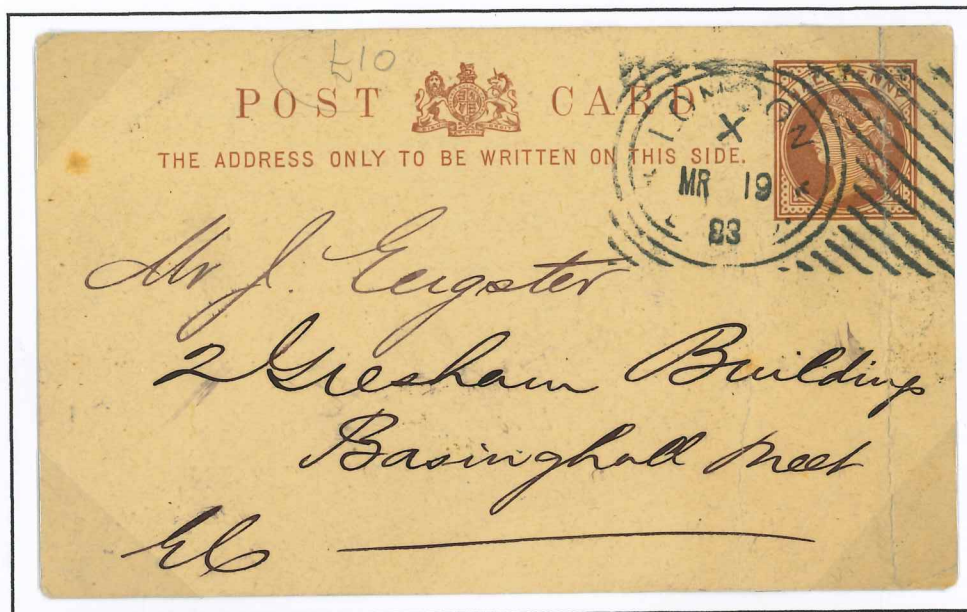 £10
POST CARD
THE ADDRESS ONLY TO BE WRITTEN ON THIS SIDE.
HALFPENNY
LONDON
X
MR 19
83
Mr J. Eugster
2 Gresham Building
Basinghall Street
EC